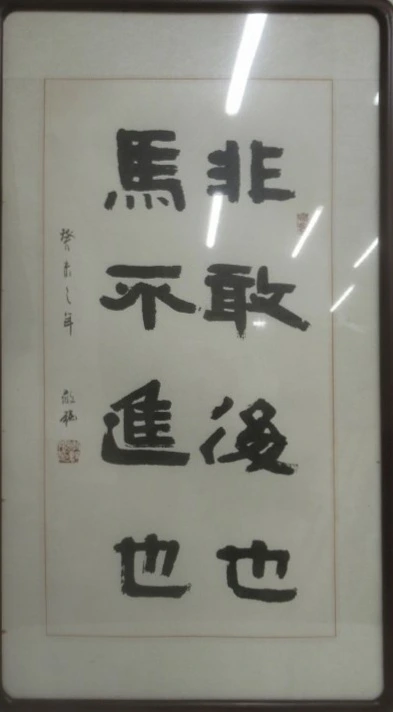 非敢後也
馬不進也
癸未之年